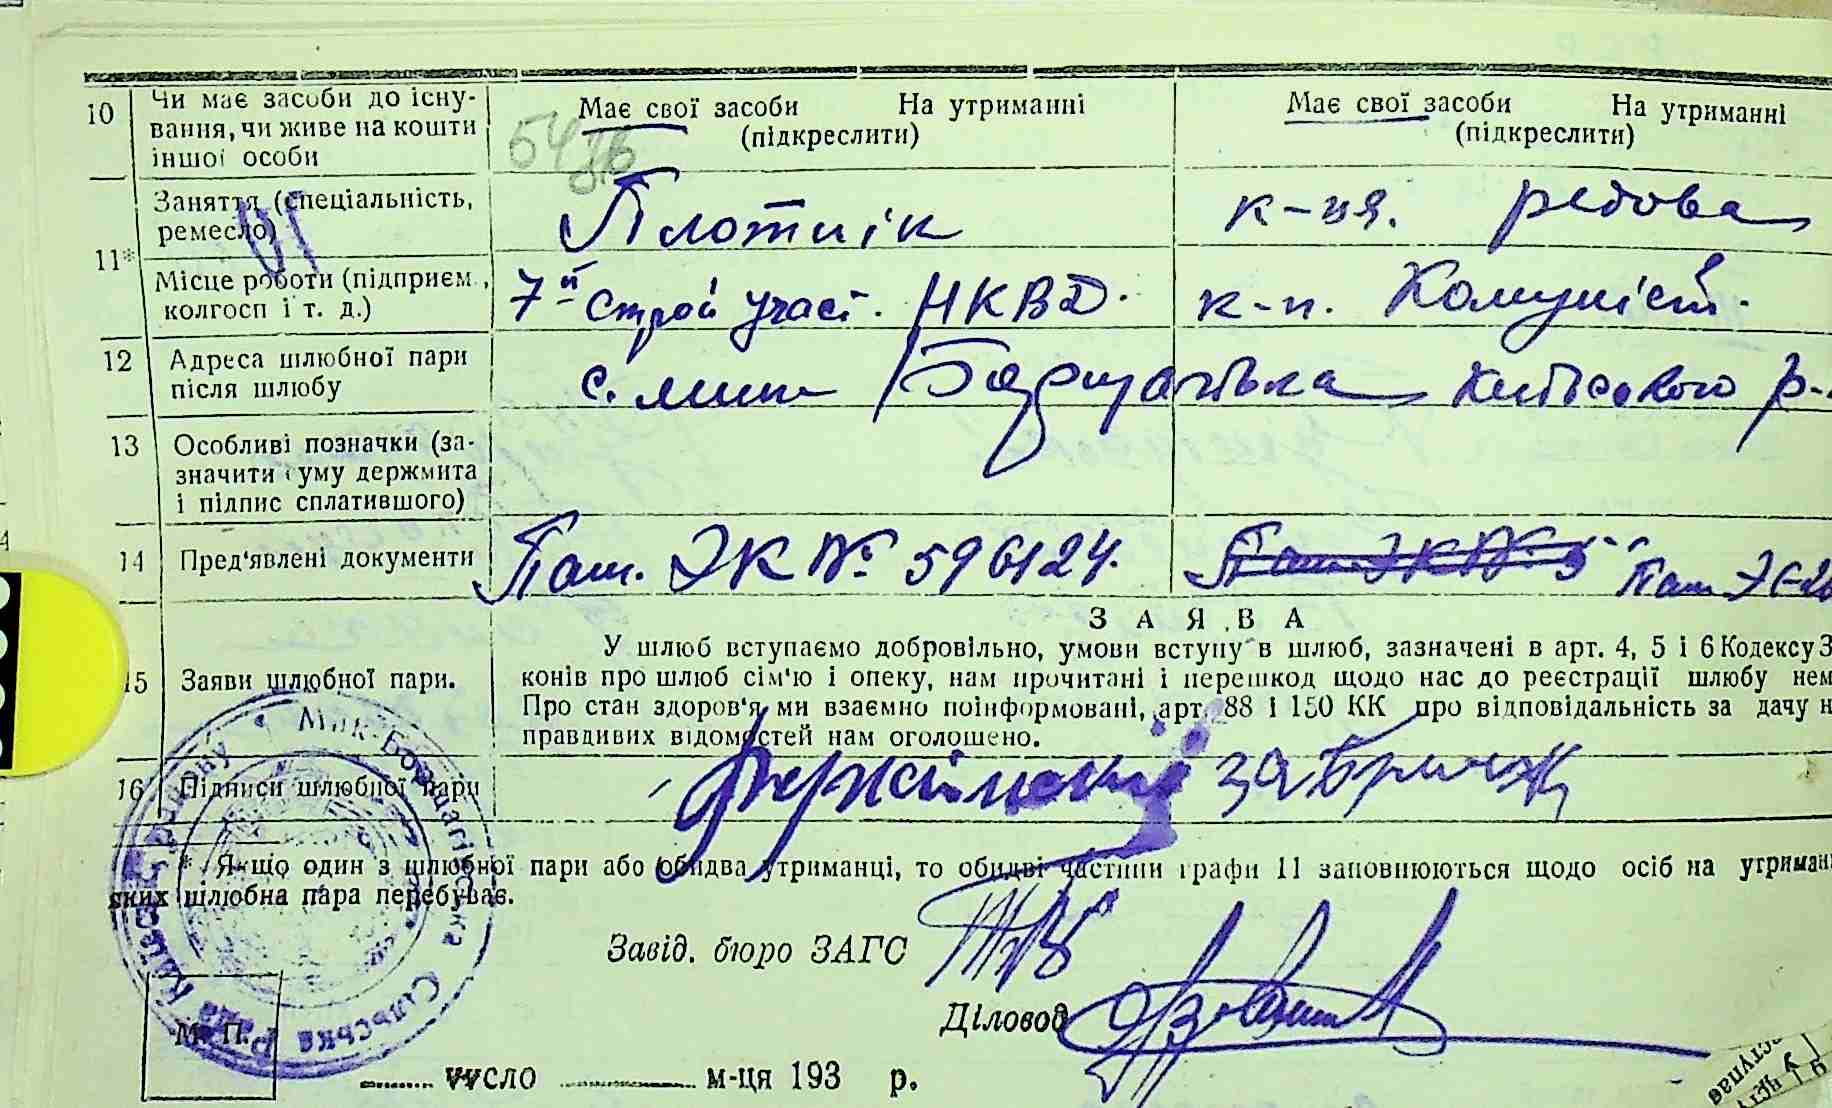 10 Чи має засоби до існу-
вання, чи живе на кошти
іншої особи
Має свої засоби На утриманні
(підкреслити)
Має свої засоби На утриманні
(підкреслити)
11* Заняття (спеціальність,
ремесло)
Плотнік
к-ця. редова
Місце роботи (підприєм.,
колгосп і т. д.)
7й Строй участ. НКВД.
к-п. Комуніст.
12 Адреса шлюбної пари
після шлюбу
с. Мик Борщагівка Київського р-
13 Особливі позначки (за-
значити суму держмита
і підпис сплатившого)
14 Пред'явлені документи
Паш. ЭК № 596124.
Паш.
З А Я В А
15 Заяви шлюбної пари.
У шлюб вступаємо добровільно, умови вступу в шлюб, зазначені в арт. 4, 5 і 6 Кодексу З
конів про шлюб сім'ю і опеку, нам прочитані і перешкод щодо нас до реєстрації шлюбу нем
Про стан здоров'я ми взаємно поінформовані, арт. 88 і 150 КК про відповідальність за дачу н
правдивих відомостей нам оголошено.
16 Підписи шлюбної пари
* Якщо один з шлюбної пари або обидва утриманці, то обидві частини графи 11 заповнюються щодо осіб на утриман
ских шлюбна пара перебуває.
Завід. бюро ЗАГС
Діловод
М. П.
число м-ця 193 р.
Мик-Борщагівська Сільська Рада Київськ. району